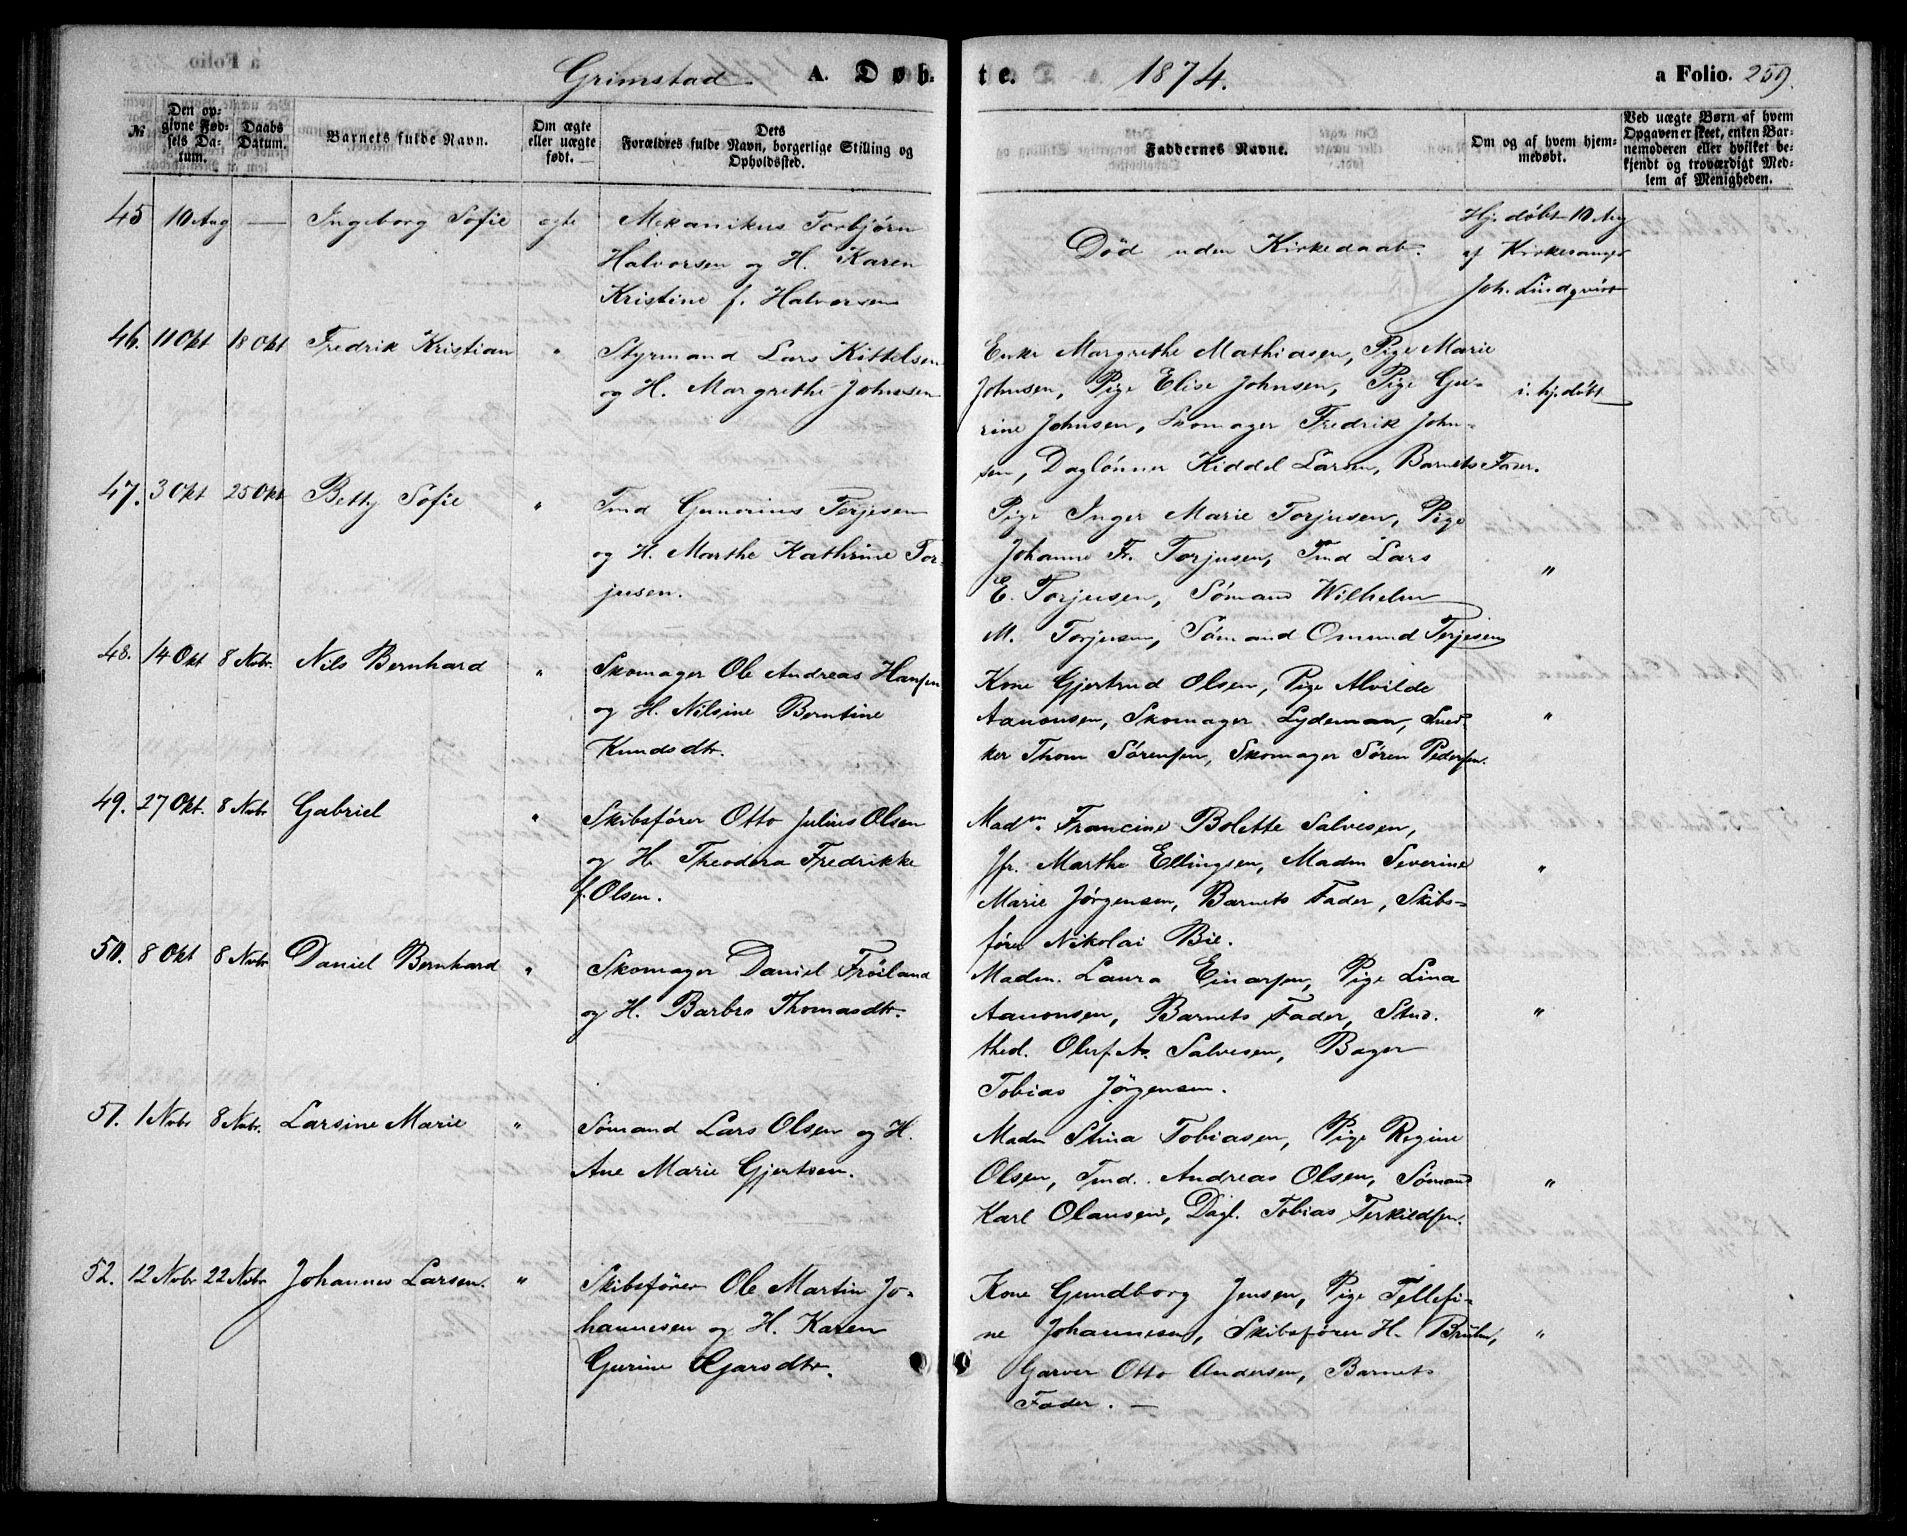 Grimstad A. Døbte. 1874. a Folio. 259.
№
Den opgivne Fødsels Datum.
Daabs Datum.
Barnets fulde Navn.
Om ægte eller uægte født.
Dets Forældres fulde Navn, borgerlige Stilling og Opholdssted.
Faddernes Navne.
Om og af hvem hjemmedøbt.
Ved uægte Børn af hvem Opgaven er skeet, enten Barnemoderen eller hvilket bekjendt og troværdigt Medlem af Menigheden.
45 10 Aug — Ingeborg Sofie egte Mekanikus Torbjørn
Halvorsen og H. Karen
Kristine f. Halvorsen
Død uden Kirkedaab.
Hj. døbt 10 Aug
af Kirkesanger
Joh. Lindqvist
46. 11 Okt 18 Okt Fredrik Kristian " Styrmand Lars Kittelsen
og H. Margrethe Johnsen
Enke Margrethe Mathiasen, Pige Marie
Johnsen, Pige Elise Johnsen, Pige Gu-
rine Johnsen, Skomager Fredrik John-
sen, Daglønner Kiddel Larsen, Barnets Fader.
i. hj. døbt
47. 3 Okt 25 Okt Betty Sofie " Tmd Gunerius Terjesen
og H. Marthe Kathrine Tor-
jusen.
Pige Inger Marie Torjusen, Pige
Johanne Fr. Torjusen, Tmd Lars
E. Torjusen, Sømand Wilhelm
M. Torjusen, Sømand Omund Terjesen
"
48. 14 Okt 8 Nvbr. Nils Bernhard " Skomager Ole Andreas Hansen
og H. Nilsine Berntine
Knudsdtr.
Kone Gjertrud Olsen, Pige Alvilde
Aanonsen, Skomager Lydeman, Sned-
ker Thom Sörensen, Skomager Sören Pedersen.
"
49. 27 Okt. 8 Nvbr Gabriel " Skibsfører Otto Julius Olsen
og H. Theodora Fredrikke
f. Olsen.
Madm. Francine Bolette Salvesen,
Jfr. Marthe Ellingsen, Madm Severine
Marie Jørgensen, Barnets Fader, Skibs-
fører Nikolai Bie.
"
50. 8 Okt 8 Nvbr Daniel Bernhard " Skomager Daniel Fröiland
og H. Barbro Thomasdtr.
Madm. Laura Einarsen, Pige Lina
Aanonsen, Barnets Fader, Stud.
theol. Oluf A. Salvesen, Bager
Tobias Jörgensen.
"
51. 1 Nvbr 8 Nvbr. Larsine Marie " Sømand Lars Olsen og H.
Ane Marie Gjertsen.
Madm Stina Tobiasen, Pige Regine
Olsen, Tmd. Andreas Olsen, Sømand
Karl Olausen, Dagl. Tobias Terkildsen.
"
52. 12 Nvbr 22 Nvbr Johannes Larsen. " Skibsfører Ole Martin Jo-
hannesen og H. Karen
Gurine
Kone Gundborg Jensen, Pige Tellefi-
ne Johannesen, Skibsfører H.
Garver Otto Andersen, Barnets
Fader. —
"